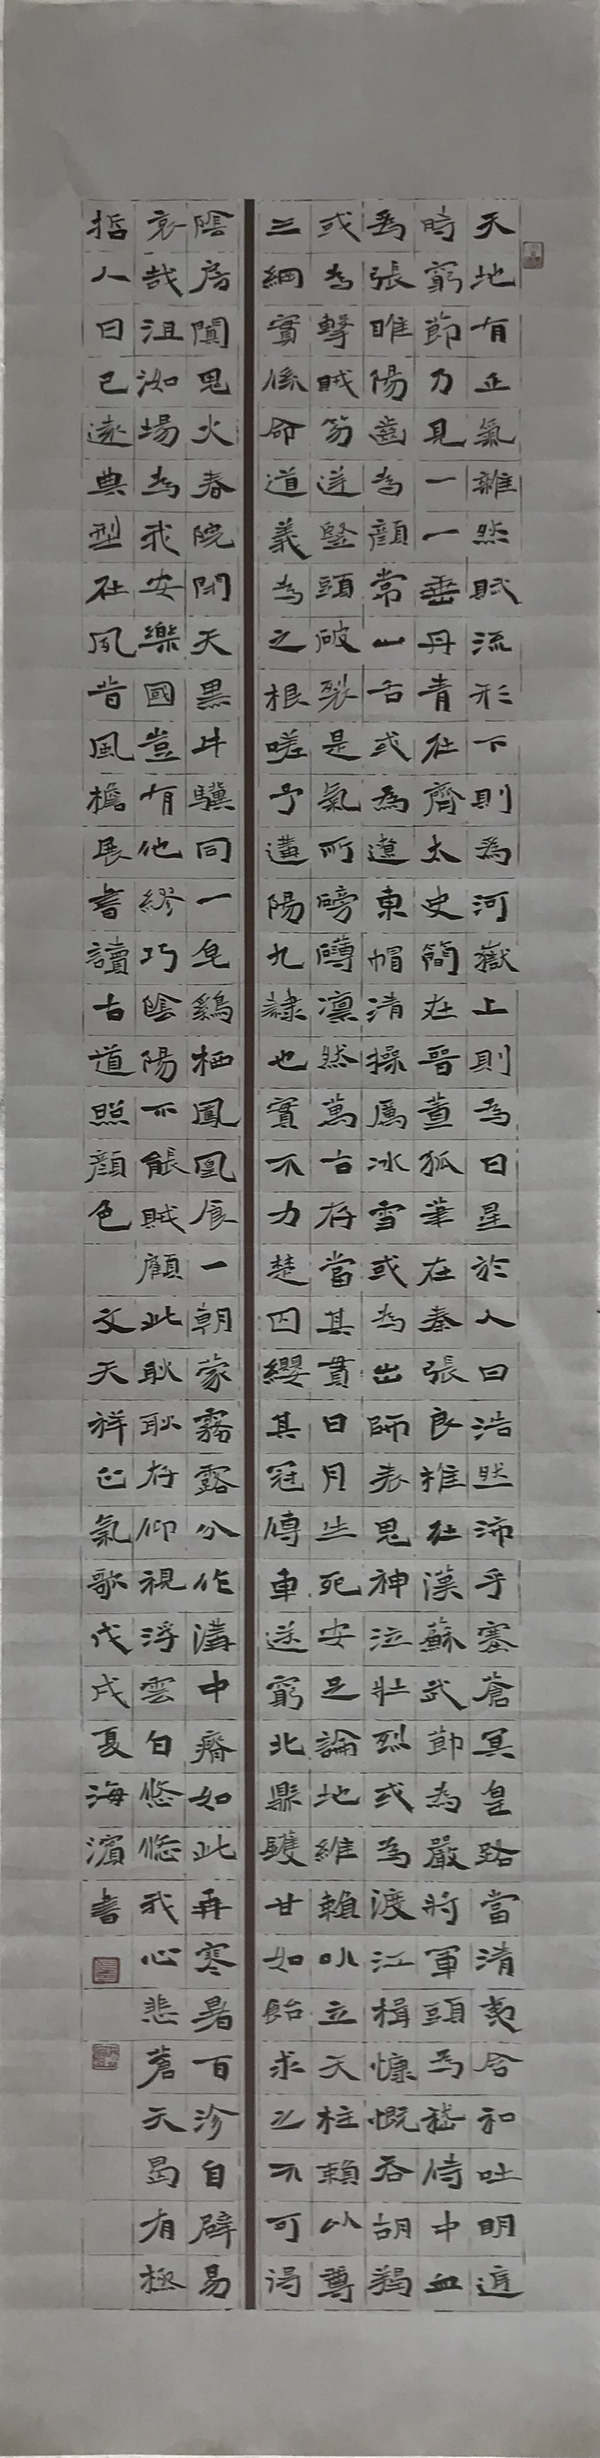 天地有正氣雜然賦流形下則為河嶽上則為日星於人曰浩然沛乎塞蒼冥皇路當清夷含和吐明庭
時窮節乃見一一垂丹青在齊太史簡在晉董狐筆在秦張良椎在漢蘇武節為嚴將軍頭為嵇侍中血
為張睢陽齒為顏常山舌或為遼東帽清操厲冰雪或為出師表鬼神泣壯烈或為渡江楫慷慨吞胡羯
或為擊賊笏逆豎頭破裂是氣所磅礴凜然萬古存當其貫日月生死安足論地維賴以立天柱賴以尊
三綱實係命道義為之根嗟予遘陽九隸也實不力楚囚纓其冠傳車送窮北鼎鑊甘如飴求之不可得
陰房闃鬼火春院閉天黑牛驥同一皂鷄栖鳳凰食一朝蒙霧露分作溝中瘠如此再寒暑百沴自辟易
哀哉沮洳場為我安樂國豈有他繆巧陰陽不能賊顧此耿耿存仰視浮雲白悠悠我心悲蒼天曷有極
哲人日已遠典型在夙昔風檐展書讀古道照顏色 文天祥正氣歌戊戌夏海濱書